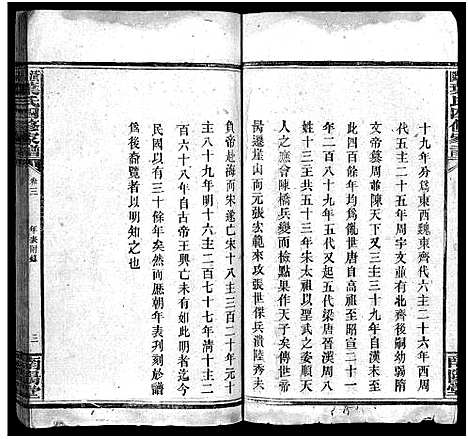 十九年分爲東西魏東齊代六主二十六年西周
代五主二十五年周宇文並有北齊後嗣幼弱隋
文帝簒周并陳天下又歸一統三主三十九年自漢末至
四百餘年均爲亂世唐自高祖至昭宣二十主
年二百八十九年五代又起五代梁唐晉漢周八
姓十三主共五十三年宋太祖以聖武之姿順天
人之心陳橋兵變而檢點果作天子矣傳世帝
昺遷崖山而元張宏範來攻張世傑兵潰陸秀夫
負帝赴海而宋遂亡宋十八主三百二十年元十
主八十九年明十六主二百七十七年清十主二
百六十八年自古帝王興亡未有如是明者迄今
民國以有三十餘年矣然而歷朝年表列刻於譜
爲後裔覽者以明知之也
葉氏四修家譜
卷三
年表附錄
三
南陽堂